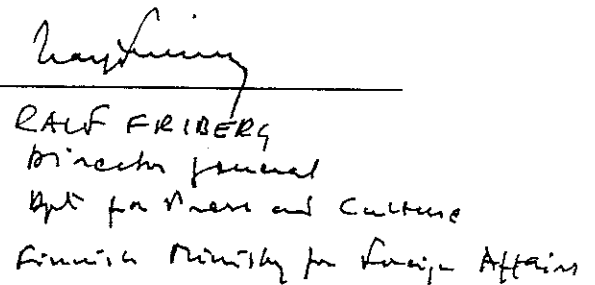 RALF FRIBERG
Director general
Dpt for Press and Culture
Finnish Ministry for Foreign Affairs